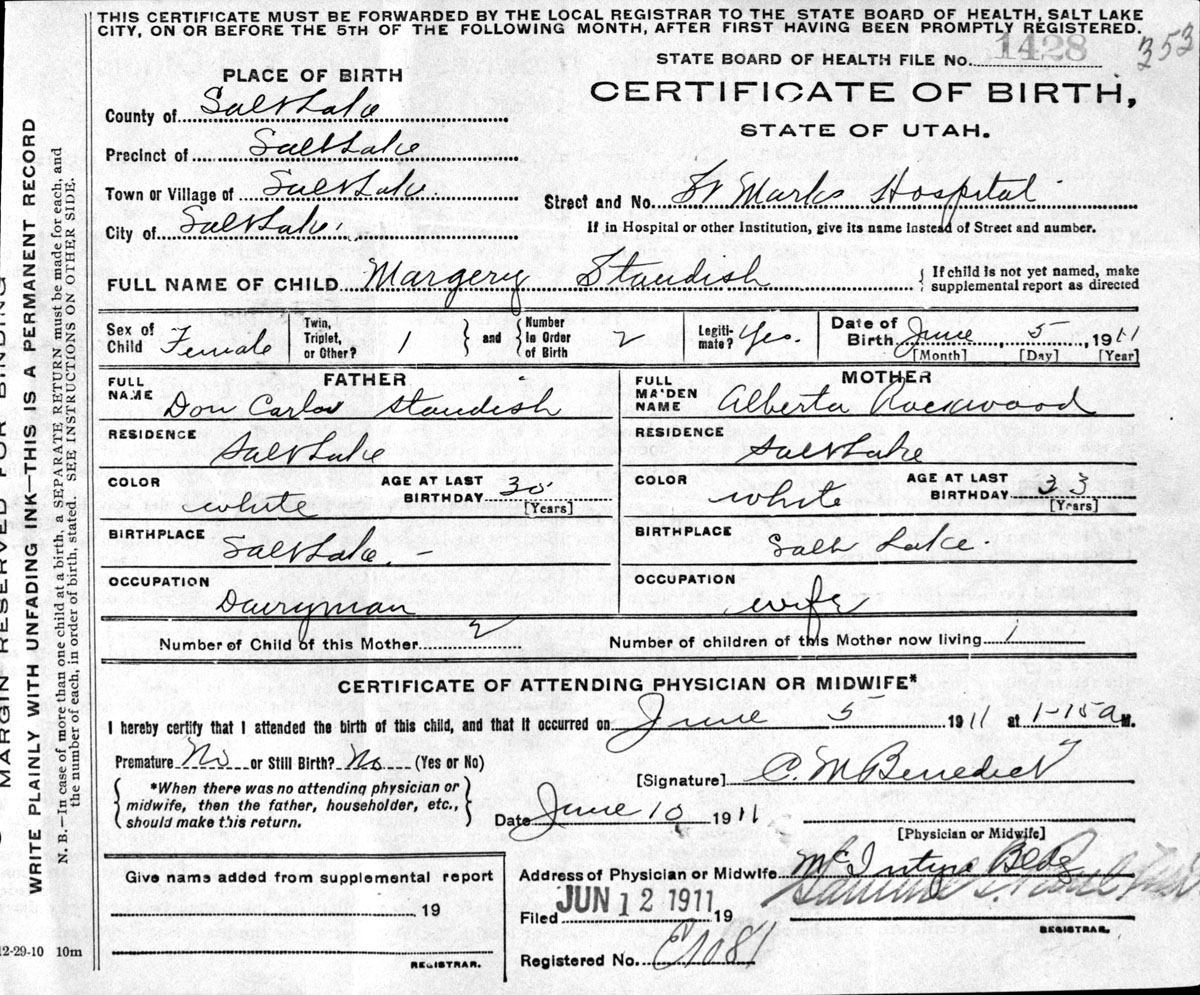 THIS CERTIFICATE MUST BE FORWARDED BY THE LOCAL REGISTRAR TO THE STATE BOARD OF HEALTH, SALT LAKE
CITY, ON OR BEFORE THE 5TH OF THE FOLLOWING MONTH, AFTER FIRST HAVING BEEN PROMPTLY REGISTERED.
353
STATE BOARD OF HEALTH FILE No. 1428
PLACE OF BIRTH
CERTIFICATE OF BIRTH,
STATE OF UTAH.
County of Salt Lake
Precinct of Salt Lake
Town or Village of Salt Lake
City of Salt Lake
Street and No. St Marks Hospital
If in Hospital or other Institution, give its name instead of Street and number.
FULL NAME OF CHILD Margery Standish
If child is not yet named, make
supplemental report as directed
Sex of Child Female
Twin, Triplet, or Other? 1
and Number in Order of Birth 2
Legiti-mate? Yes.
Date of Birth June 5, 1911
[Month] [Day] [Year]
FATHER
FULL NAME Don Carlos Standish
RESIDENCE Salt Lake
COLOR white
AGE AT LAST BIRTHDAY 30
[Years]
BIRTHPLACE Salt Lake.
OCCUPATION Dairyman
MOTHER
FULL MAIDEN NAME Alberta Rockwood
RESIDENCE Salt Lake
COLOR white
AGE AT LAST BIRTHDAY 33
[Years]
BIRTHPLACE Salt Lake.
OCCUPATION wife
Number of Child of this Mother 2
Number of children of this Mother now living 1
CERTIFICATE OF ATTENDING PHYSICIAN OR MIDWIFE*
I hereby certify that I attended the birth of this child, and that it occurred on June 5 1911 at 1-15 a M.
Premature No or Still Birth? No (Yes or No)
*When there was no attending physician or
midwife, then the father, householder, etc.,
should make this return.
[Signature] C. M Benedict
Date June 10 1911
[Physician or Midwife]
Address of Physician or Midwife McIntyre Bldg
Filed JUN 12 1911 19
REGISTRAR.
Registered No.
Give name added from supplemental report
19
REGISTRAR.
12-29-10 10m
MARGIN RESERVED FOR BINDING
WRITE PLAINLY WITH UNFADING INK—THIS IS A PERMANENT RECORD
N. B.—In case of more than one child at a birth, a SEPARATE RETURN must be made for each, and
the number of each, in order of birth, stated. SEE INSTRUCTIONS ON OTHER SIDE.